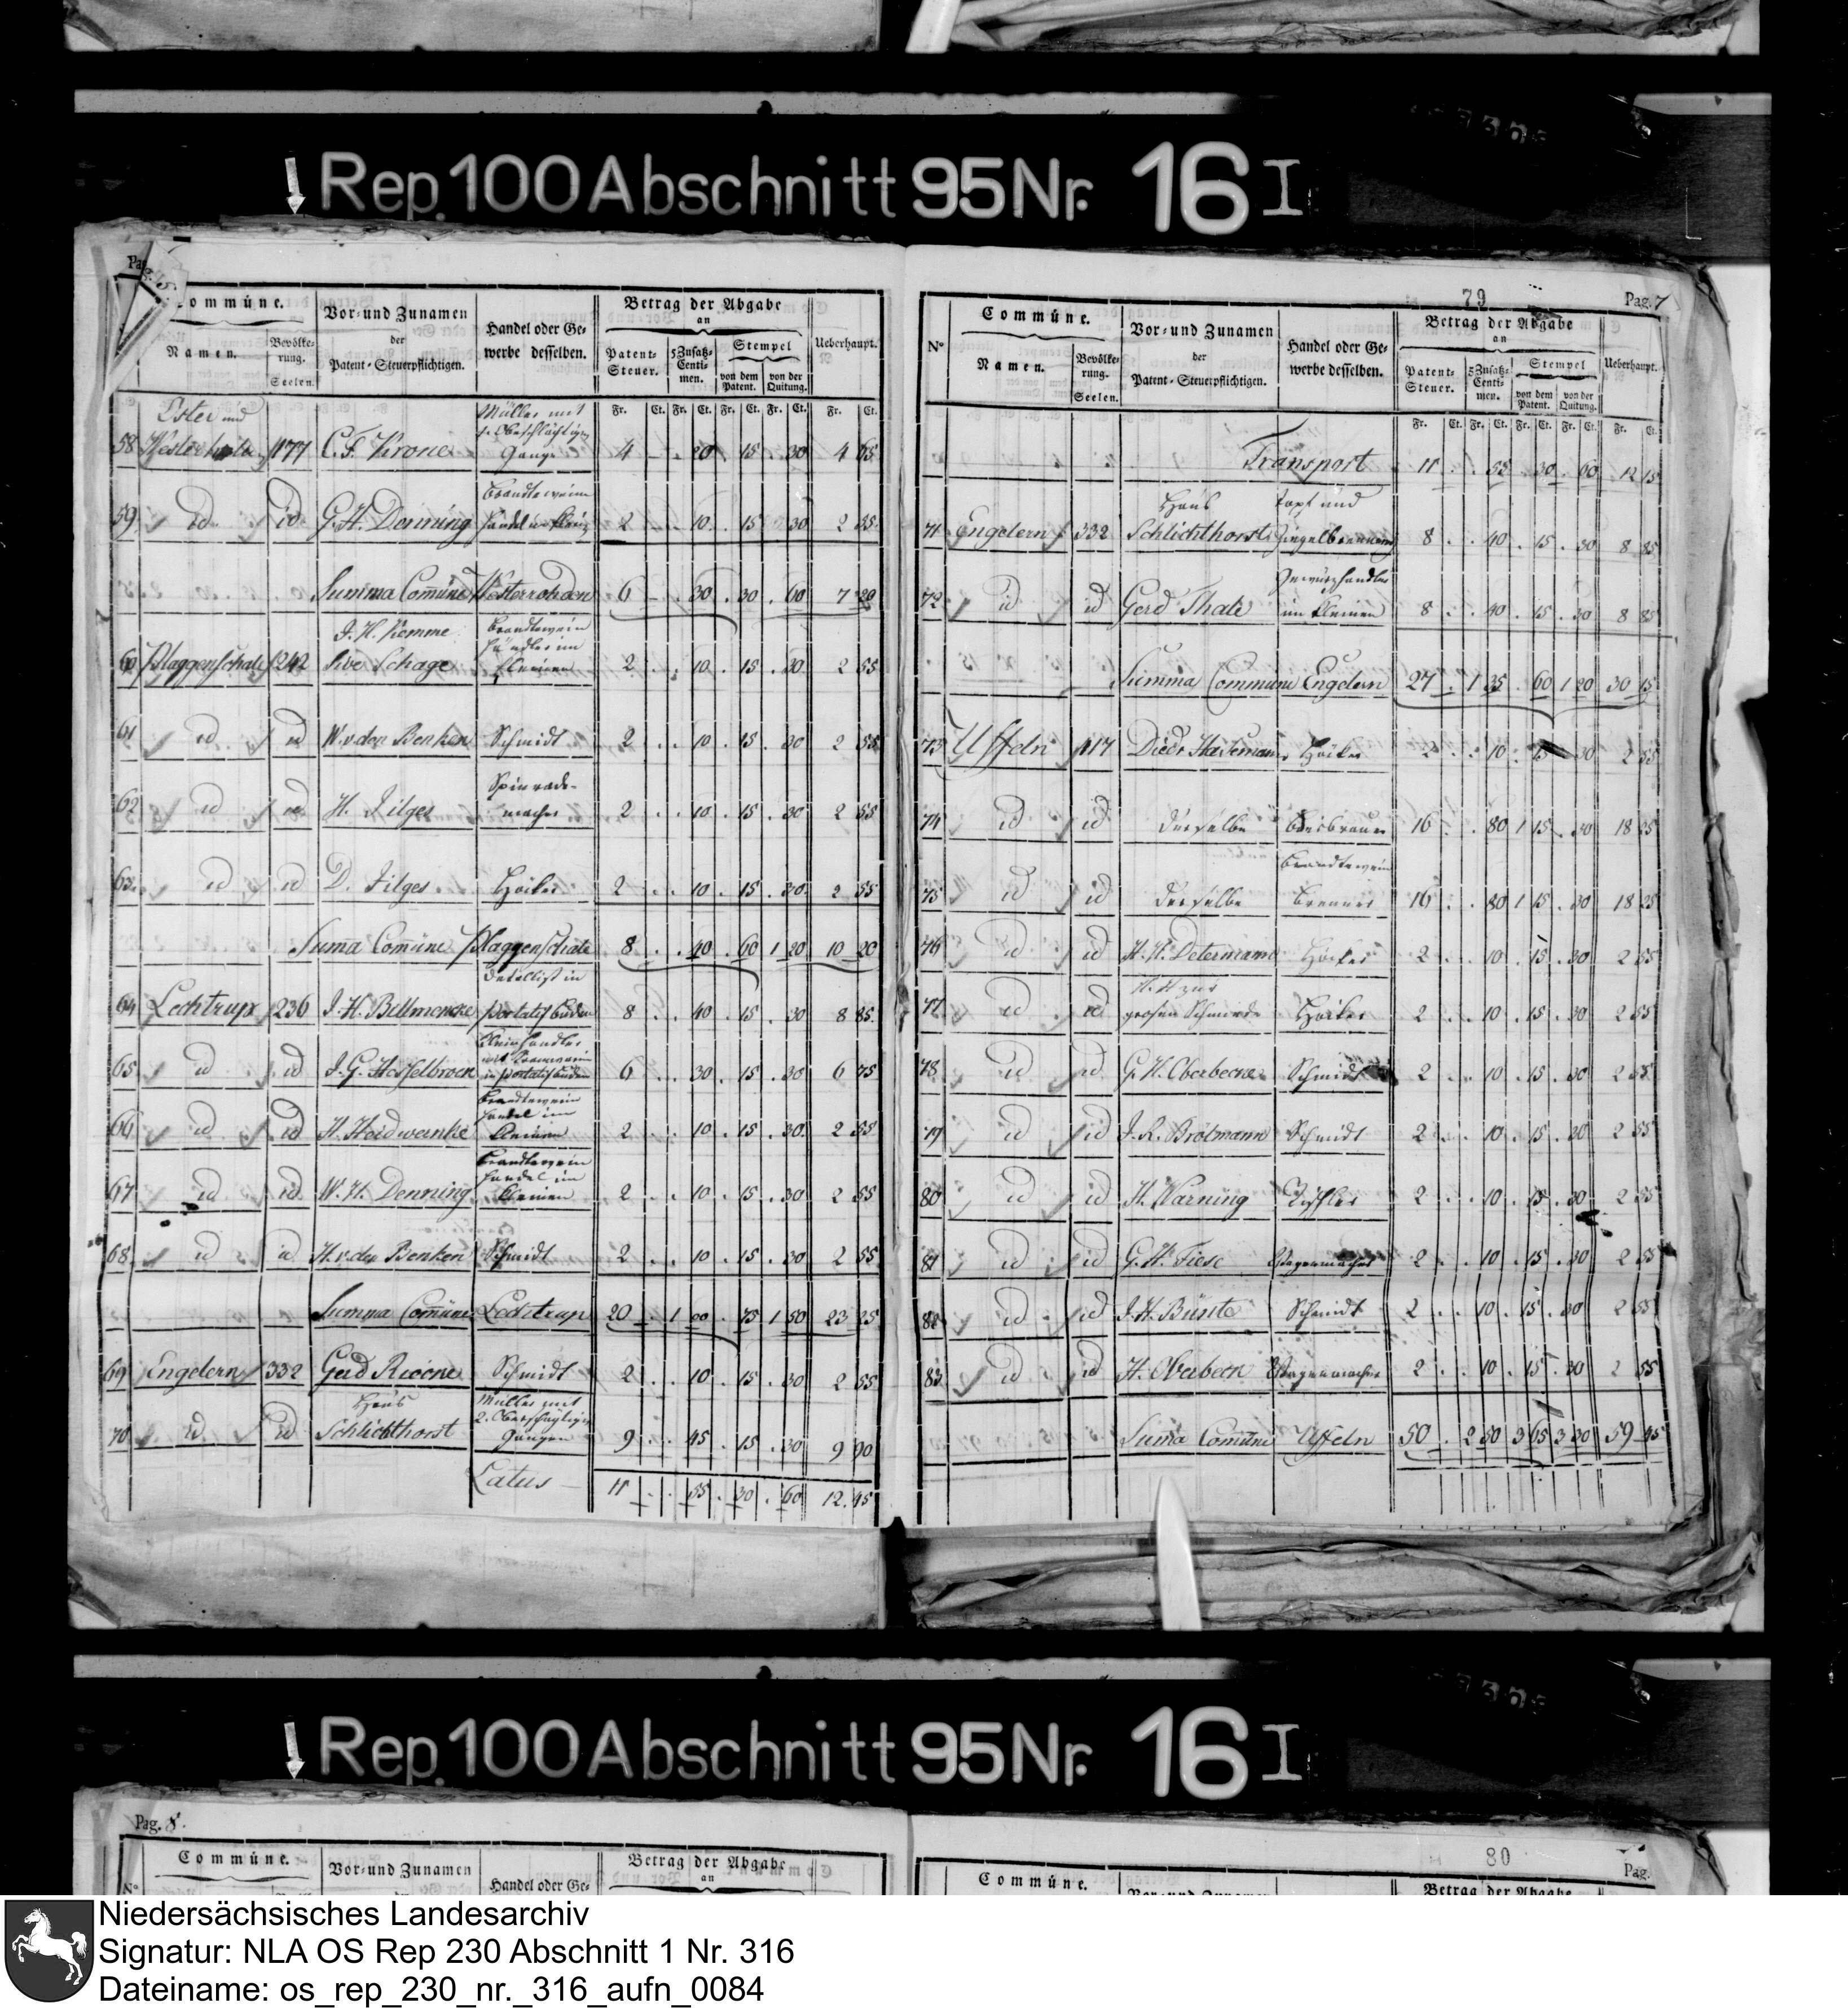 Rep. 100 Abschnitt 95 Nr. 16 I
Commúne. Vor- und Zunamen der Patent-Steuerpflichtigen. Handel oder Gewerbe desselben. Betrag der Abgabe an Ueberhaupt.
Namen. Bevölkerung. Seelen. Patent-Steuer. 5 Zusatz-Centimen. Stempel von dem Patent. von der Quitung.
Fr. Ct. Fr. Ct. Fr. Ct. Fr. Ct. Fr. Ct.
58 177 C. F. Krone Müller mit 1. Gange 4 20 15 30 4 65
59 id id G. H. Denning Brandtewein 2 10 15 30 2 55
Summa Comüne 6 30 30 60 7 20
60 Plaggenschale 242 J. H. Kemme sive Schage Brandtwein Händler im Kleinen 2 10 15 30 2 55
61 id id W. v. der Benken Schmidt 2 10 15 30 2 55
62 id id H. Jilges Spinrade-macher 2 10 15 30 2 55
63 id id D. Jilges Höcker 2 10 15 30 2 55
Summa Comüne Plaggenschale 8 40 60 1 20 10 20
64 Lechtrup 236 Detallist in portatif buden 8 40 15 30 8 85
65 id id Kleinhandler 6 30 15 30 6 75
66 id id Brandtewein handel im Kleinen 2 10 15 30 2 55
67 id id W. H. Denning Brandtewein handel im Kleinen 2 10 15 30 2 55
68 id id H. v. der Benken Schmidt 2 10 15 30 2 55
Summa Comüne Lechtrup 20 1 00 75 1 50 23 25
69 Engelern 332 Schmidt 2 10 15 30 2 55
70 id id Schlichthorst Müller mit 2. Gangen 9 45 15 30 9 90
Latus 11 55 30 60 12 45
79
Pag. 7
No Commúne. Vor- und Zunamen der Patent-Steuerpflichtigen. Handel oder Gewerbe desselben. Betrag der Abgabe an Ueberhaupt.
Namen. Bevölkerung. Seelen. Patent-Steuer. 5 Zusatz-Centimen. Stempel von dem Patent. von der Quitung.
Fr. Ct. Fr. Ct. Fr. Ct. Fr. Ct. Fr. Ct.
Transport 11 55 30 60
71 Engelern 332 Schlichthorst Topf und Ziegelbrennerey 8 40 15 30 8 85
72 id id Gerd Thale Gewürzhandler im Kleinen 8 40 15 30 8 85
Summa Commüne Engelern 27 1 35 60 1 20 30 15
73 Uffeln Höcker 2 10 15 30 2 55
74 id id derselbe Bierbrauer 16 80 1 15 30 18 25
75 id id derselbe Brandtewein Brenner 16 80 1 15 30 18 25
76 id id Höcker 2 10 15 30 2 55
77 id id Höcker 2 10 15 30 2 55
78 id id Schmidt 2 10 15 30 2 55
79 id id Schmidt 2 10 15 30 2 55
80 id id H. Warning Tischler 2 10 15 30 2 55
81 id id G. H. Wagenmacher 2 10 15 30 2 55
82 id id J. H. Bünte Schmidt 2 10 15 30 2 55
83 id id H. Oberbeck Wagenmacher 2 10 15 30 2 55
Suma Comüne Uffeln 50 2 50 3 65 3 30 59 45
Rep. 100 Abschnitt 95 Nr. 16 I
Pag. 8.
Commúne. Vor- und Zunamen Handel oder Ge- Betrag der Abgabe an
80
Pag.
Commúne. Betrag der Abgabe
Niedersächsisches Landesarchiv
Signatur: NLA OS Rep 230 Abschnitt 1 Nr. 316
Dateiname: os_rep_230_nr._316_aufn_0084